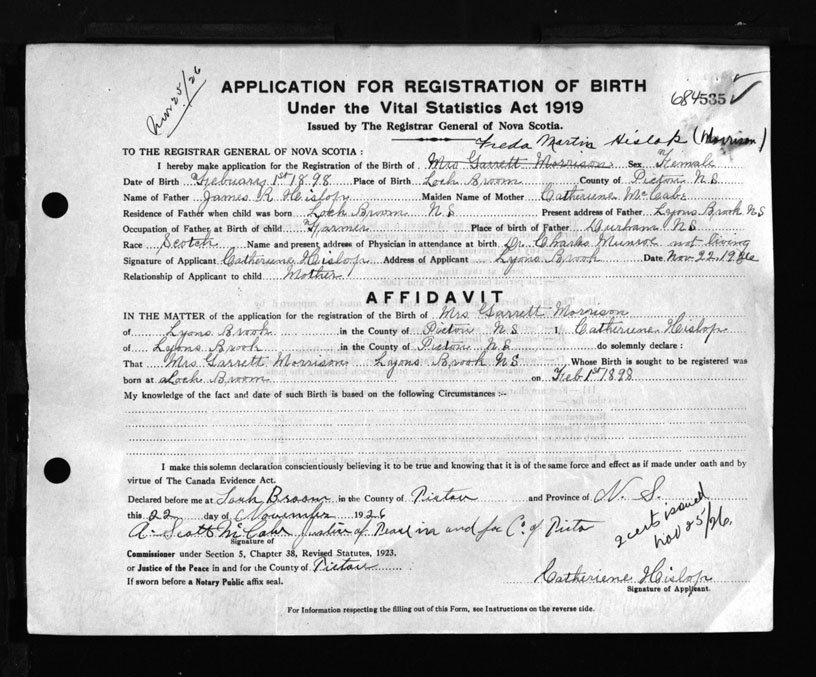 Nov 25/26
APPLICATION FOR REGISTRATION OF BIRTH
Under the Vital Statistics Act 1919
684535
Issued by The Registrar General of Nova Scotia.
Freda Martin Hislop (Morrison)
TO THE REGISTRAR GENERAL OF NOVA SCOTIA:
I hereby make application for the Registration of the Birth of Mrs Garrett Morrison Sex Female
Date of Birth Febuary 1st 1898 Place of Birth Loch Broom County of Pictou N S
Name of Father James R Hislop Maiden Name of Mother Catheriene McCabe
Residence of Father when child was born Loch Broom N S Present address of Father Lyons Brook N S
Occupation of Father at Birth of child Farmer Place of birth of Father Durham N S
Race Scotch Name and present address of Physician in attendance at birth Dr. Charles Munroe not living
Signature of Applicant Catheriene Hislop Address of Applicant Lyons Brook Date Nov 22, 1926
Relationship of Applicant to child Mother
AFFIDAVIT
IN THE MATTER of the application for the registration of the Birth of Mrs Garrett Morrison
of Lyons Brook in the County of Pictou N S I, Catheriene Hislop
of Lyons Brook in the County of Pictou N S do solemnly declare:
That Mrs Garrett Morrison Lyons Brook N S Whose Birth is sought to be registered was
born at Loch Broom on Feb 1st 1898
My knowledge of the fact and date of such Birth is based on the following Circumstances:--
I make this solemn declaration conscientiously believing it to be true and knowing that it is of the same force and effect as if made under oath and by
virtue of The Canada Evidence Act.
Declared before me at Loch Broom in the County of Pictou and Province of N. S.
this 22 day of November 1926
A. Scott McCabe Justice of Peace in and for Co. of Pictou
Signature of
2 certs issued
Nov 25/26.
Commissioner under Section 5, Chapter 38, Revised Statutes, 1923.
or Justice of the Peace in and for the County of Pictou
If sworn before a Notary Public affix seal.
Catheriene Hislop
Signature of Applicant.
For Information respecting the filling out of this Form, see Instructions on the reverse side.